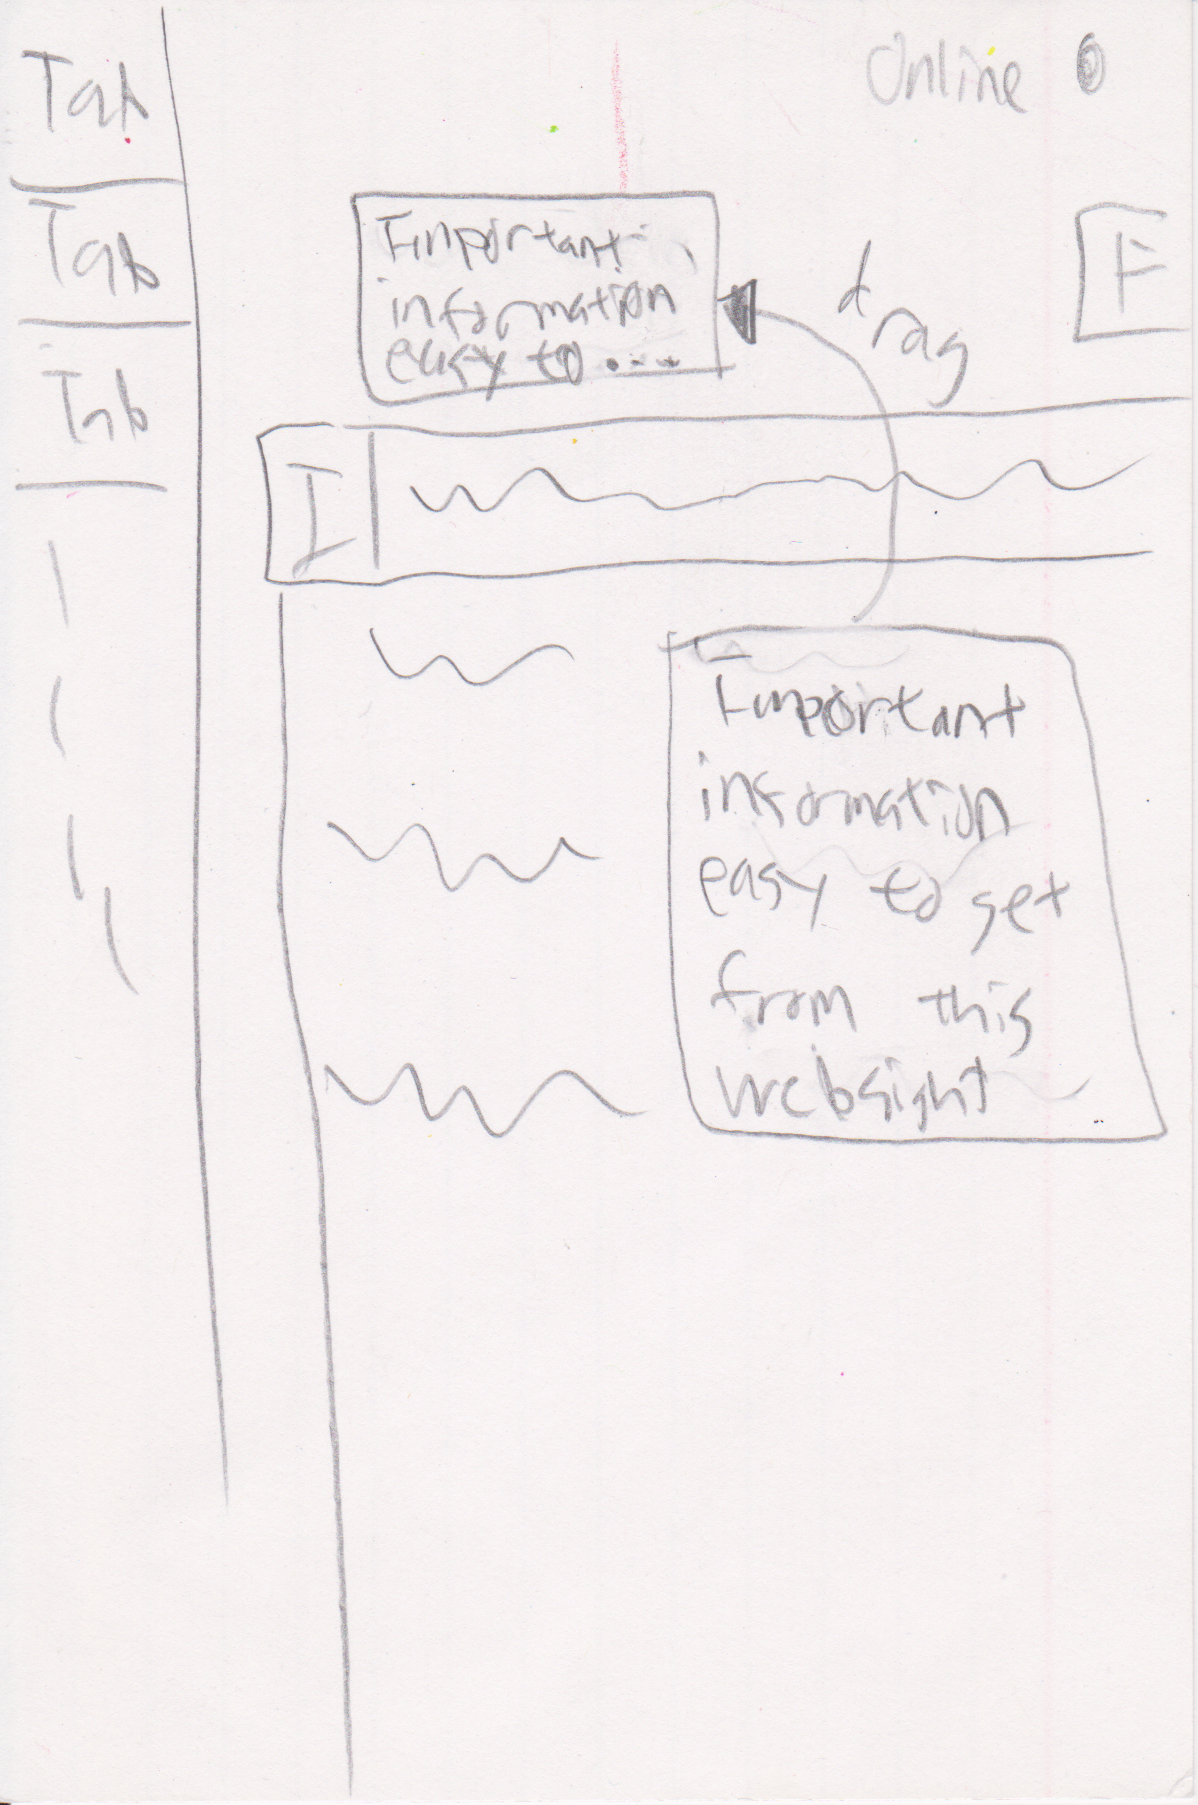 Tab
Tab
Tab
Online
Important
information
easy to ....
drag
F
I
Important
information
easy to get
from this
websight